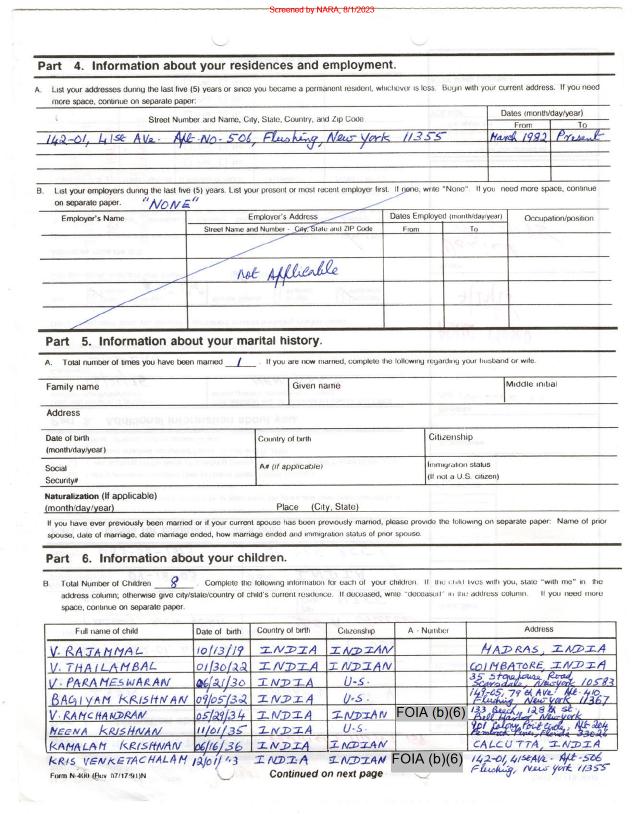 Screened by NARA, 8/1/2023
Part 4. Information about your residences and employment.
A. List your addresses during the last five (5) years or since you became a permanent resident, whichever is less. Begin with your current address. If you need
more space, continue on separate paper:
Street Number and Name, City, State, Country, and Zip Code
Dates (month/day/year)
From To
142-01, 41st Ave. Apt-No-506, Flushing, New York 11355 March 1982 Present
B. List your employers during the last five (5) years. List your present or most recent employer first. If none, write "None". If you need more space, continue
on separate paper. "NONE"
Employer's Name Employer's Address Dates Employed (month/day/year) Occupation/position
Street Name and Number - City, State and ZIP Code From To
Not Applicable
Part 5. Information about your marital history.
A. Total number of times you have been married 1 . If you are now married, complete the following regarding your husband or wife.
Family name Given name Middle initial
Address
Date of birth Country of birth Citizenship
(month/day/year)
Social A# (if applicable) Immigration status
Security# (If not a U.S. citizen)
Naturalization (If applicable)
(month/day/year) Place (City, State)
If you have ever previously been married or if your current spouse has been previously married, please provide the following on separate paper: Name of prior
spouse, date of marriage, date marriage ended, how marriage ended and immigration status of prior spouse.
Part 6. Information about your children.
B. Total Number of Children 8 . Complete the following information for each of your children. If the child lives with you, state "with me" in the
address column; otherwise give city/state/country of child's current residence. If deceased, write "deceased" in the address column. If you need more
space, continue on separate paper.
Full name of child Date of birth Country of birth Citizenship A - Number Address
V. RAJAMMAL 10/13/19 INDIA INDIAN MADRAS, INDIA
V. THAILAMBAL 01/30/22 INDIA INDIAN COIMBATORE, INDIA
V. PARAMESWARAN 06/21/30 INDIA U.S. 35 Stonehouse Road, Scarsdale, New York 10583
BAGIYAM KRISHNAN 09/05/32 INDIA U.S. 149-05, 79th Ave Apt-410 Flushing New York 11367
V. RAMCHANDRAN 05/29/34 INDIA INDIAN FOIA (b)(6) 133 Beach, 128th St, Bell Harbor, New York
MEENA KRISHNAN 11/01/35 INDIA U.S. Colony Point Circle, Apt-204 Pembroke Pines, Florida 33026
KAMALAM KRISHNAN 06/16/36 INDIA INDIAN CALCUTTA, INDIA
KRIS VENKETACHALAM INDIA INDIAN FOIA (b)(6) 142-01, 41st Ave. Apt-506 Flushing, New York 11355
Form N-400 (Rev. 07/17/91)N Continued on next page